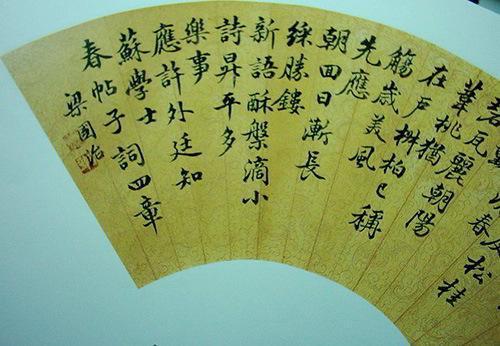 春
松桂
瓦麗朝陽
葦桃猶
在戶椒柏已稱
觴歲美風
先應
朝回日漸長
綵勝鏤
新語酥槃滴小
詩昇平多
樂事
應許外廷知
蘇學士
春帖子詞四章
梁國治